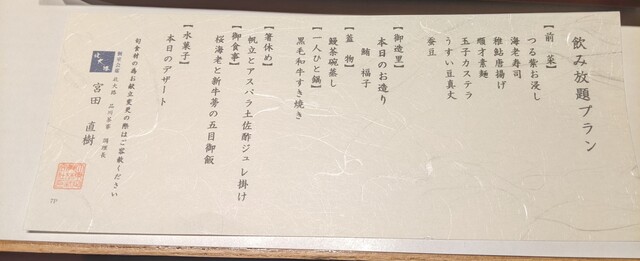 飲み放題プラン
【前菜】
つる紫お浸し
海老寿司
稚鮎唐揚げ
順才素麺
玉子カステラ
うすい豆真丈
蚕豆
【御造里】
本日のお造り
鮪 福子
【蓋物】
鰻茶碗蒸し
【一人ひと鍋】
黒毛和牛すき焼き
【箸休め】
帆立とアスパラ土佐酢ジュレ掛け
【御食事】
桜海老と新牛蒡の五目御飯
【水菓子】
本日のデザート
旬食材の為お献立変更の際はご容赦ください
個室会席 北大路 品川茶寮 調理長
北大路
宮田 直樹
TP